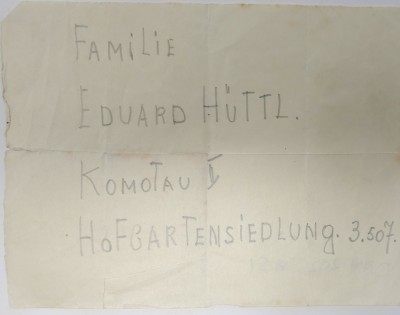 FAMiLiE
EDUARD HÜTTL.
KOMOTAU I
HOFGARTENSiEDLUNg. 3.507.